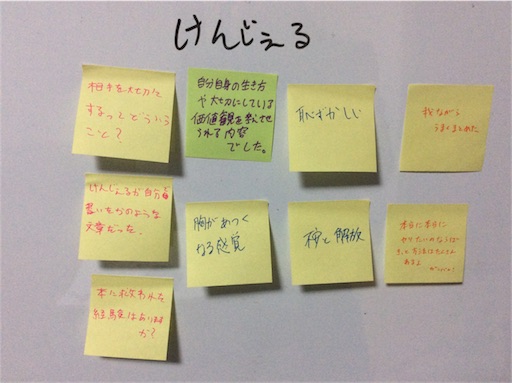 けんじぇる
相手を大切に
するってどういう
こと?
自分自身の生き方
や大切にしている
価値観を
される内容
でした。
恥ずかしい
我ながら
うまくまとめた
けんじぇるが自分
書いたかのような
文章だった。
胸があつく
なる感覚
枠と解放
本当に本当に
やりたいのならば
きっと方法はたくさん
あるよ
本に救われた
経験はあります
か?